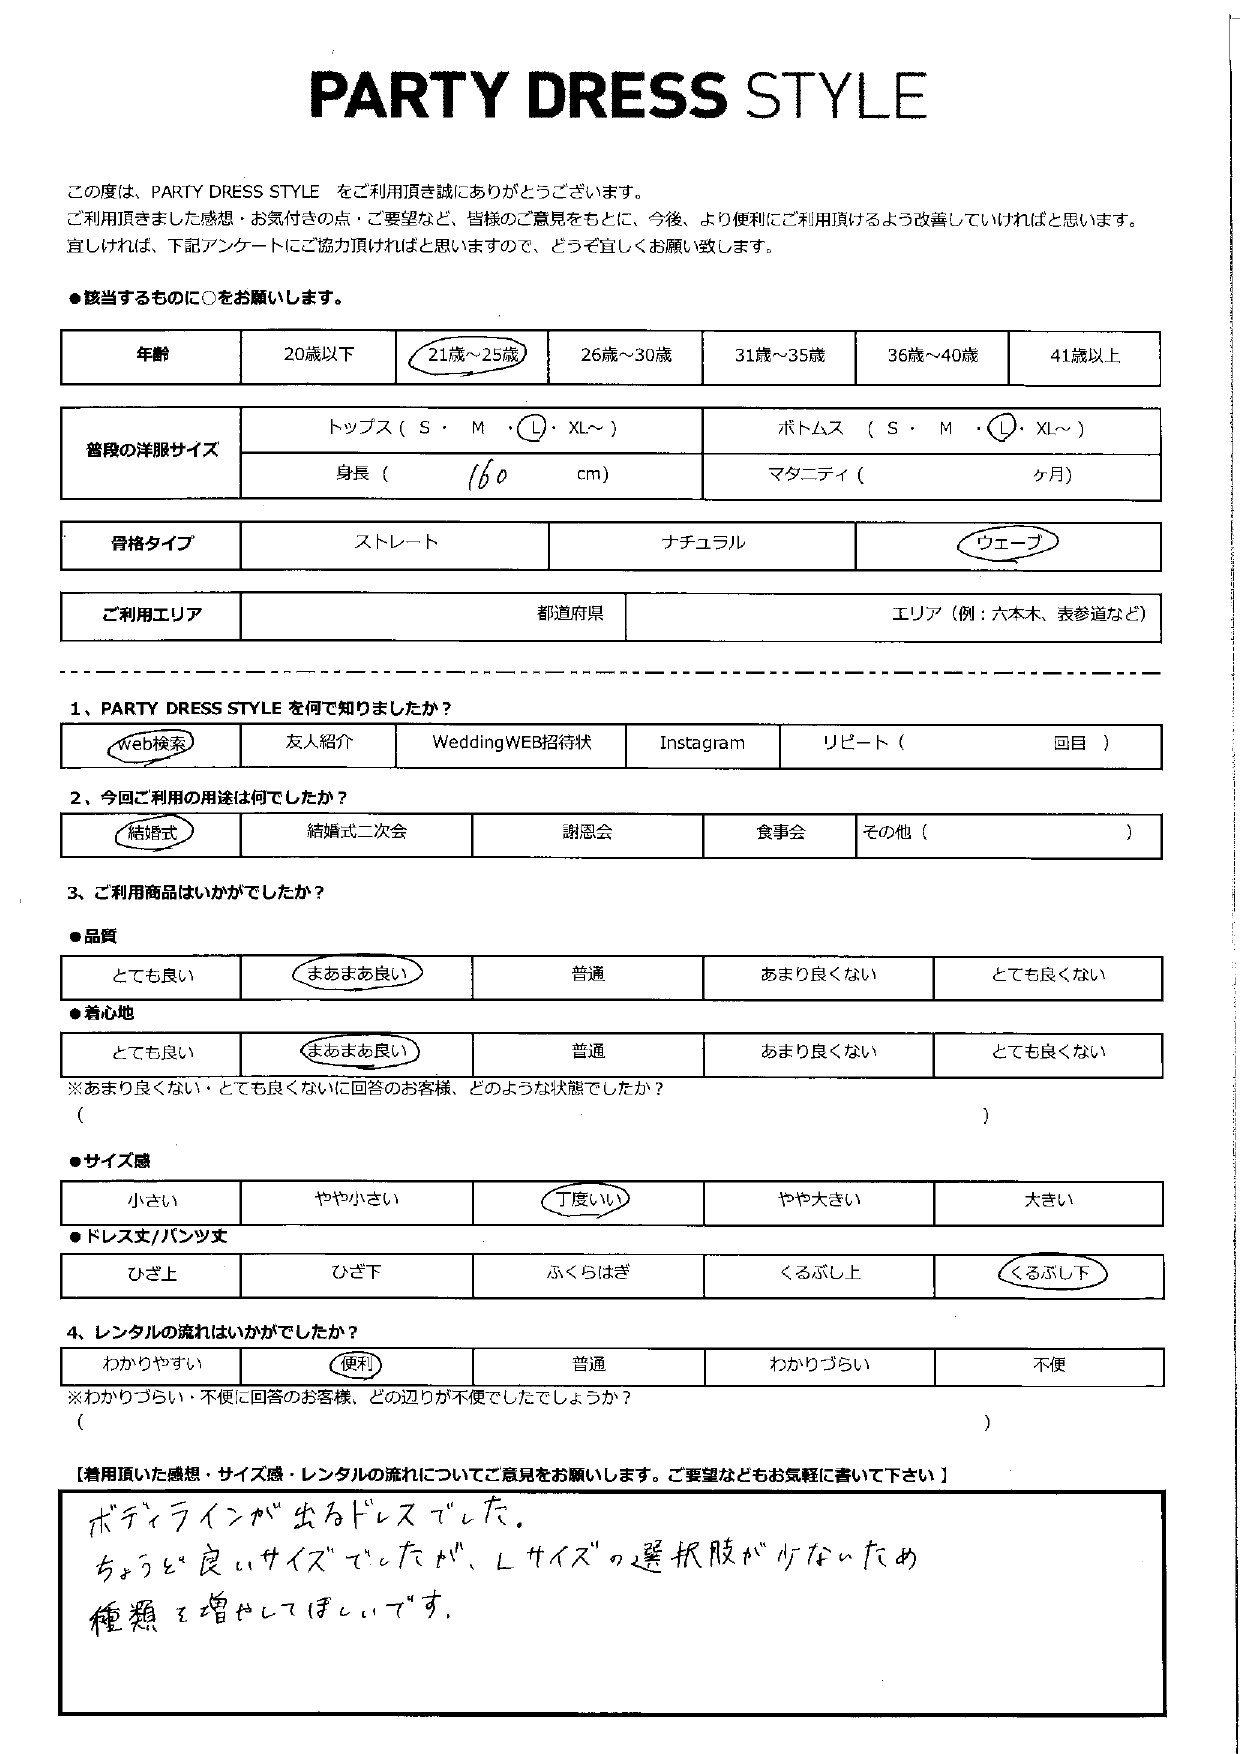 PARTY DRESS STYLE
この度は、PARTY DRESS STYLE をご利用頂き誠にありがとうございます。
ご利用頂きました感想・お気付きの点・ご要望など、皆様のご意見をもとに、今後、より便利にご利用頂けるよう改善していければと思います。
宜しければ、下記アンケートにご協力頂ければと思いますので、どうぞ宜しくお願い致します。
●該当するものに○をお願いします。
年齢 20歳以下 21歳～25歳 26歳～30歳 31歳～35歳 36歳～40歳 41歳以上
普段の洋服サイズ
トップス ( S ・ M ・ L ・ XL～ ) ボトムス ( S ・ M ・ L ・ XL～ )
身長 ( 160 cm) マタニティ ( ヶ月)
骨格タイプ ストレート ナチュラル ウェーブ
ご利用エリア 都道府県 エリア（例：六本木、表参道など）
1、PARTY DRESS STYLE を何で知りましたか？
web検索 友人紹介 WeddingWEB招待状 Instagram リピート ( 回目 )
2、今回ご利用の用途は何でしたか？
結婚式 結婚式二次会 謝恩会 食事会 その他 ( )
3、ご利用商品はいかがでしたか？
●品質
とても良い まあまあ良い 普通 あまり良くない とても良くない
●着心地
とても良い まあまあ良い 普通 あまり良くない とても良くない
※あまり良くない・とても良くないに回答のお客様、どのような状態でしたか？
( )
●サイズ感
小さい やや小さい 丁度いい やや大きい 大きい
●ドレス丈/パンツ丈
ひざ上 ひざ下 ふくらはぎ くるぶし上 くるぶし下
4、レンタルの流れはいかがでしたか？
わかりやすい 便利 普通 わかりづらい 不便
※わかりづらい・不便に回答のお客様、どの辺りが不便でしたでしょうか？
( )
【着用頂いた感想・サイズ感・レンタルの流れについてご意見をお願いします。ご要望などもお気軽に書いて下さい 】
ボディラインが出るドレスでした。
ちょうど良いサイズでしたが、Lサイズの選択肢が少ないため
種類を増やしてほしいです。